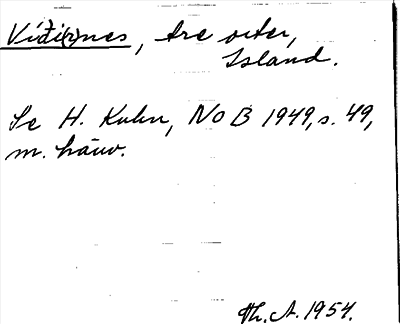 Víði(r)nes, tre orter,
Island.
Se H. Kuhn, NoB 1949, s. 49,
m. hänv.
Th. A. 1954.